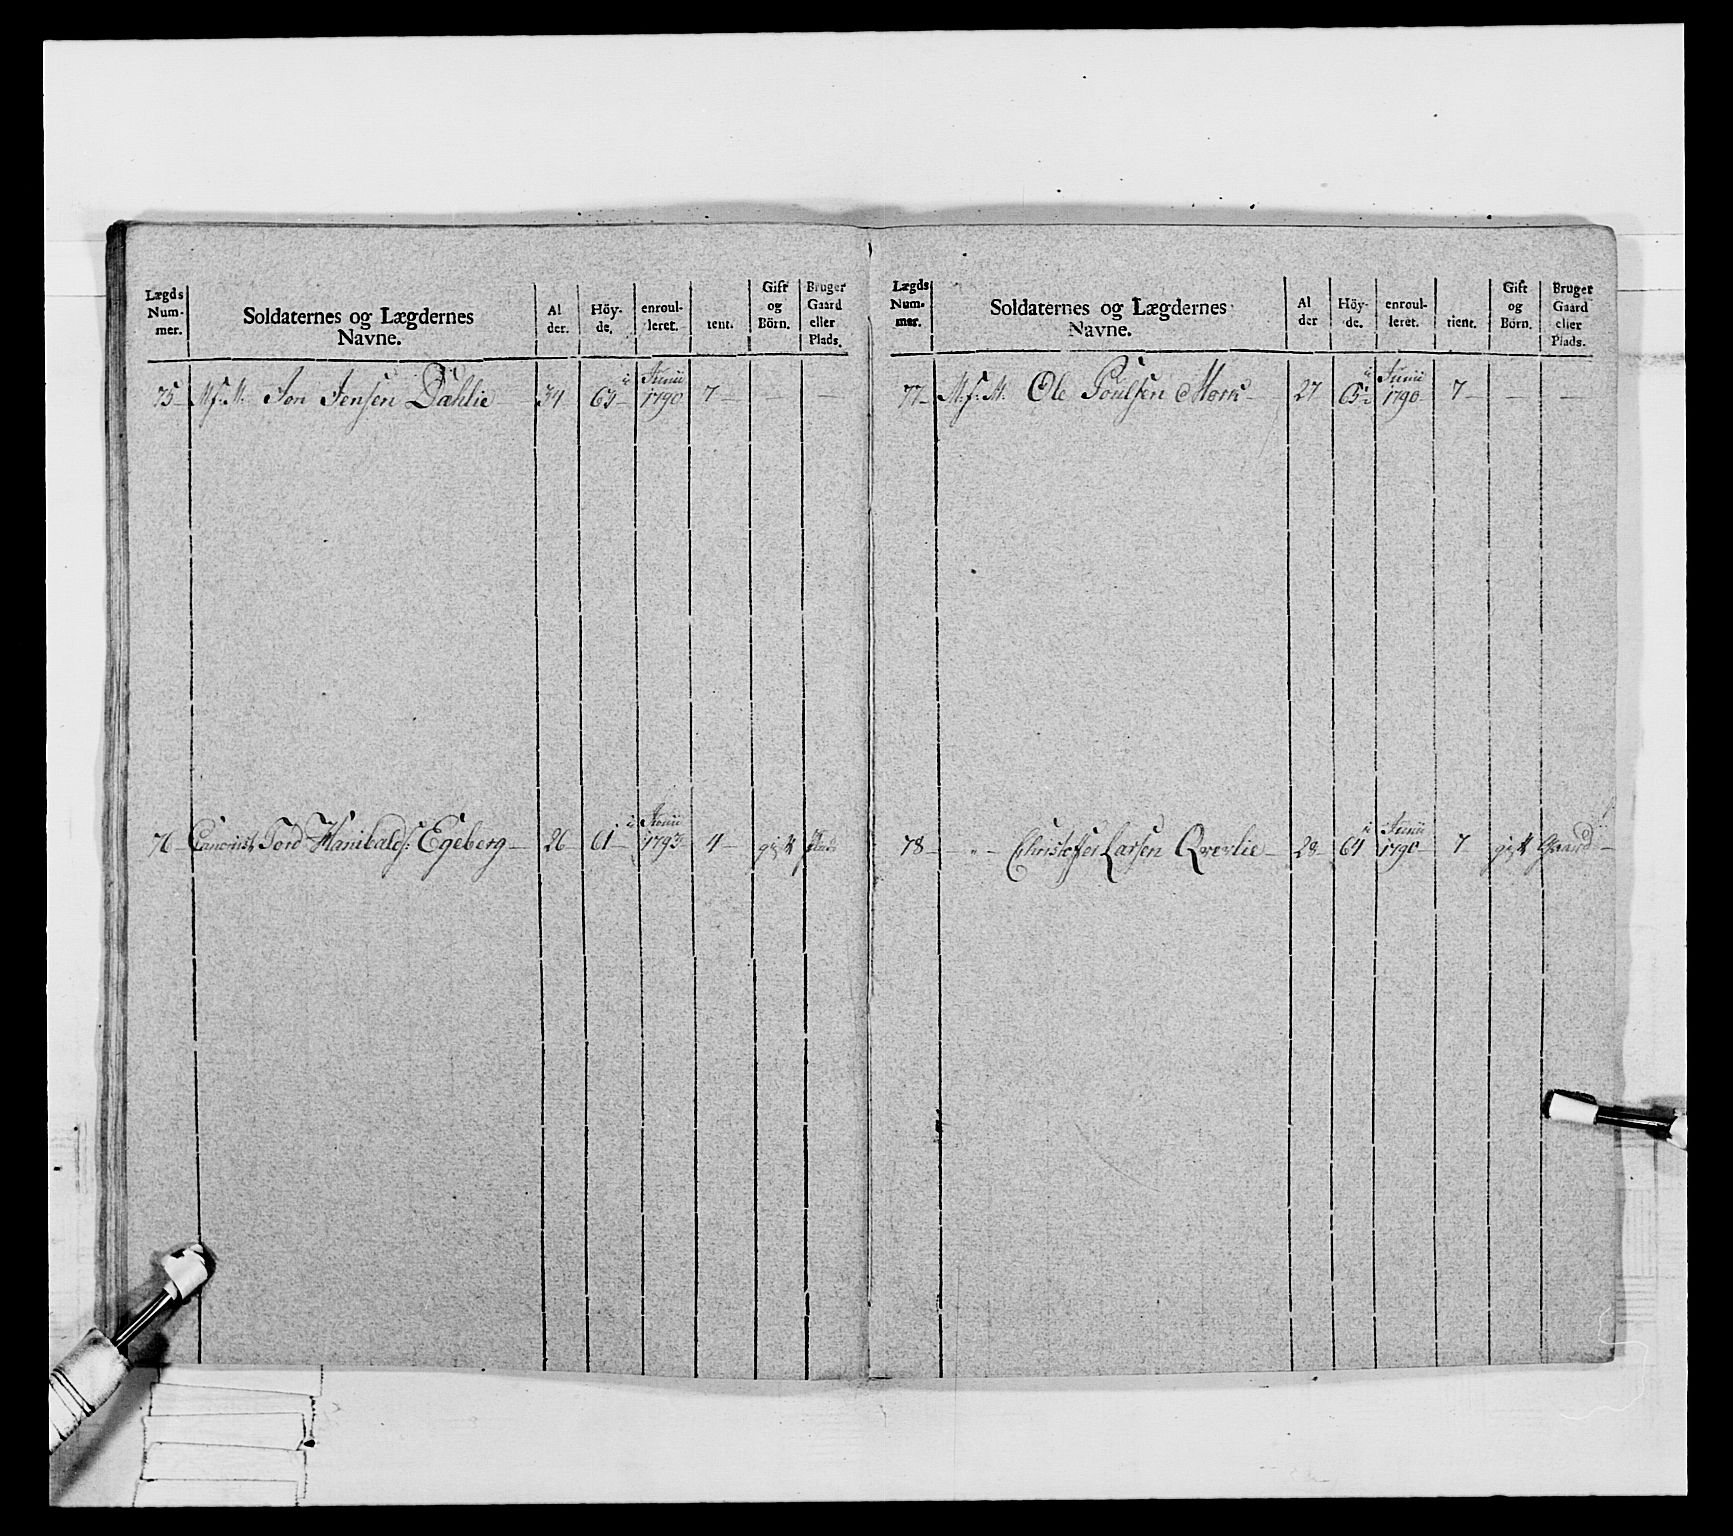 Lægds
Num-
mer.
Soldaternes og Lægdernes
Navne.
Al
der.
Höy-
de.
enroul-
leret.
tent.
Gift
og
Börn.
Bruger
Gaard
eller
Plads.
75 M.f.M. Jon Jensen Dæhlie 34 64 Junii 1790 7 — —
76 Canonist Tord Hanibalds: Egeberg 26 61 Junii 1793 4 gift Plads
Lægds
Num-
mer.
Soldaternes og Lægdernes
Navne.
Al
der
Höy-
de.
enroul-
leret.
tient.
Gift
og
Börn.
Bruger
Gaard
eller
Plads.
77 M.f.M. Ole Poulsen Mork 27 65 Junii 1790 7 — —
78 " Christoffer Larsen Qverlie 28 64 Junii 1790 7 gift Gaard